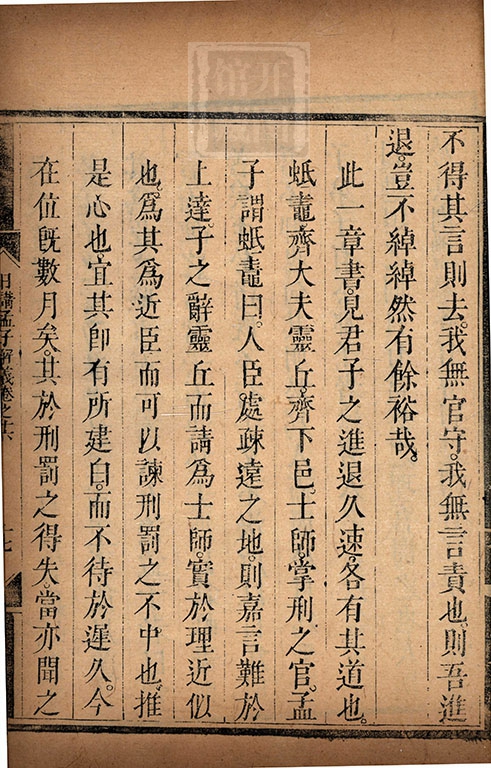 不得其言則去。我無官守。我無言責也。則吾進
退。豈不綽綽然有餘裕哉。
此一章書。見君子之進退久速。各有其道也。
蚳鼃。齊大夫。靈丘。齊下邑。士師。掌刑之官。孟
子謂蚳鼃曰。人臣處疎遠之地。則嘉言難於
上達。子之辭靈丘而請為士師。實於理近似
也。為其為近臣而可以諫刑罰之不中也。推
是心也。宜其即有所建白。而不待於遲久。今
在位旣數月矣。其於刑罰之得失。當亦聞之
日講孟子解義卷之十六